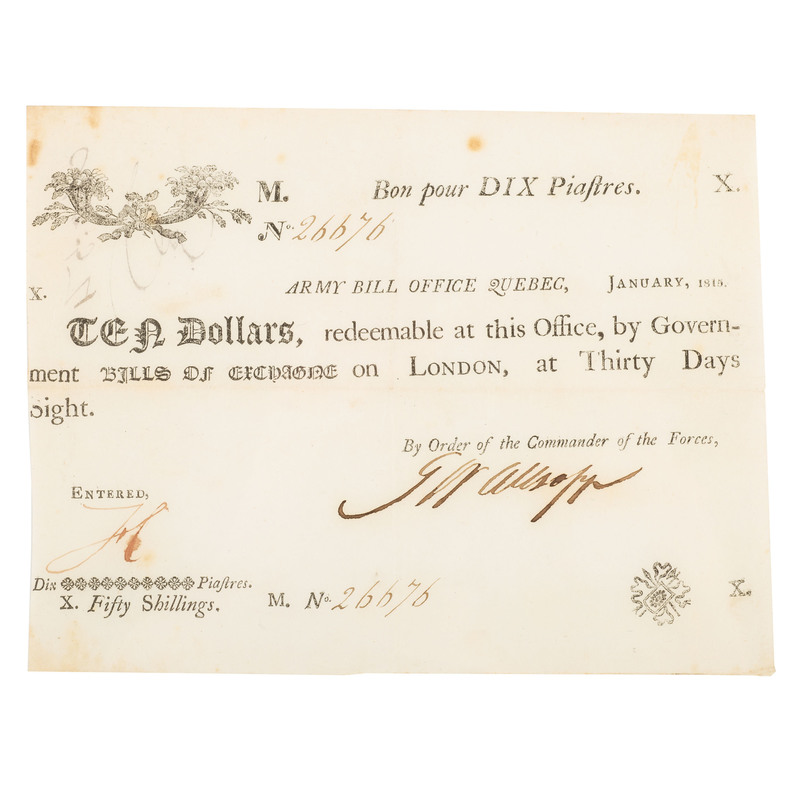 M. Bon pour DIX Piaſtres. X.
No. 26676
X. ARMY BILL OFFICE QUEBEC, JANUARY, 1815.
TEN Dollars, redeemable at this Office, by Govern-
ment BILLS OF EXCHAGNE on LONDON, at Thirty Days
Sight.
By Order of the Commander of the Forces,
ENTERED,
Dix Piaſtres.
X. Fifty Shillings. M. No. 26676 X.